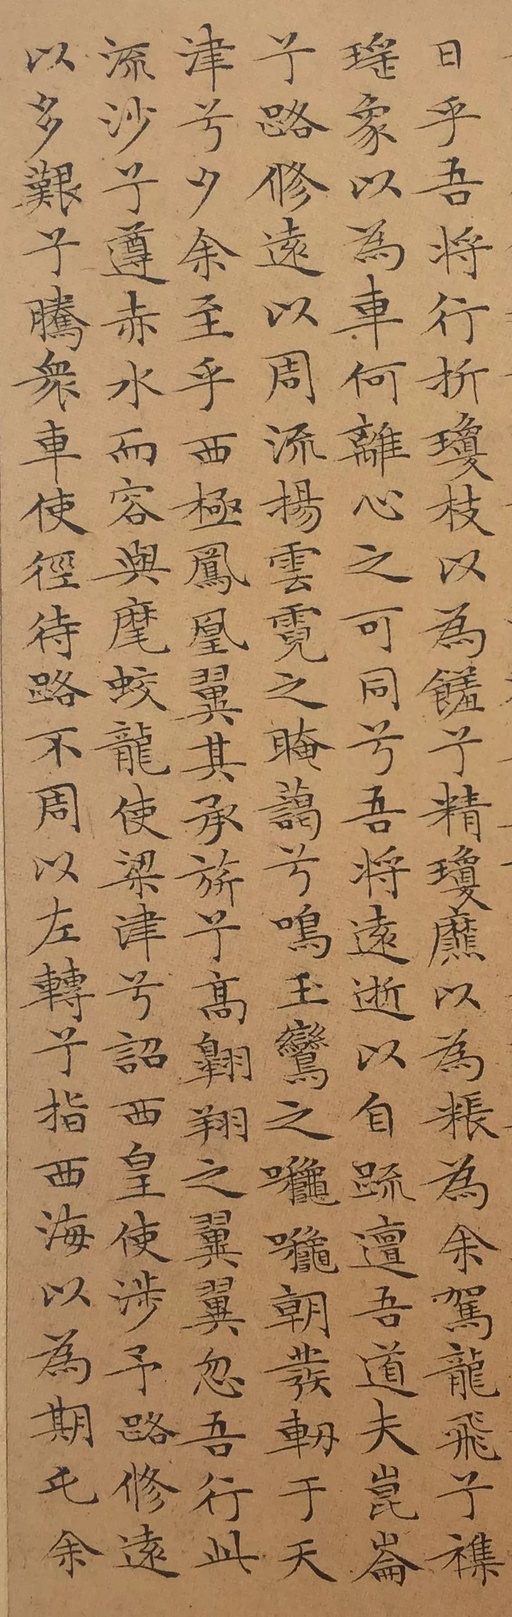 日乎吾将行折瓊枝以為饈兮精瓊爢以為粻為余駕龍飛兮襍
瑶象以為車何離心之可同兮吾将遠逝以自疏邅吾道夫崑崙
兮路修遠以周流揚雲霓之晻藹兮鳴玉鸞之朝發軔于天
津兮夕余至乎西極鳳凰翼其承旂兮高翱翔之翼翼忽吾行此
流沙兮遵赤水而容與麾蛟龍使梁津兮詔西皇使涉予路修遠
以多艱兮騰衆車使徑待路不周以左轉兮指西海以為期屯余